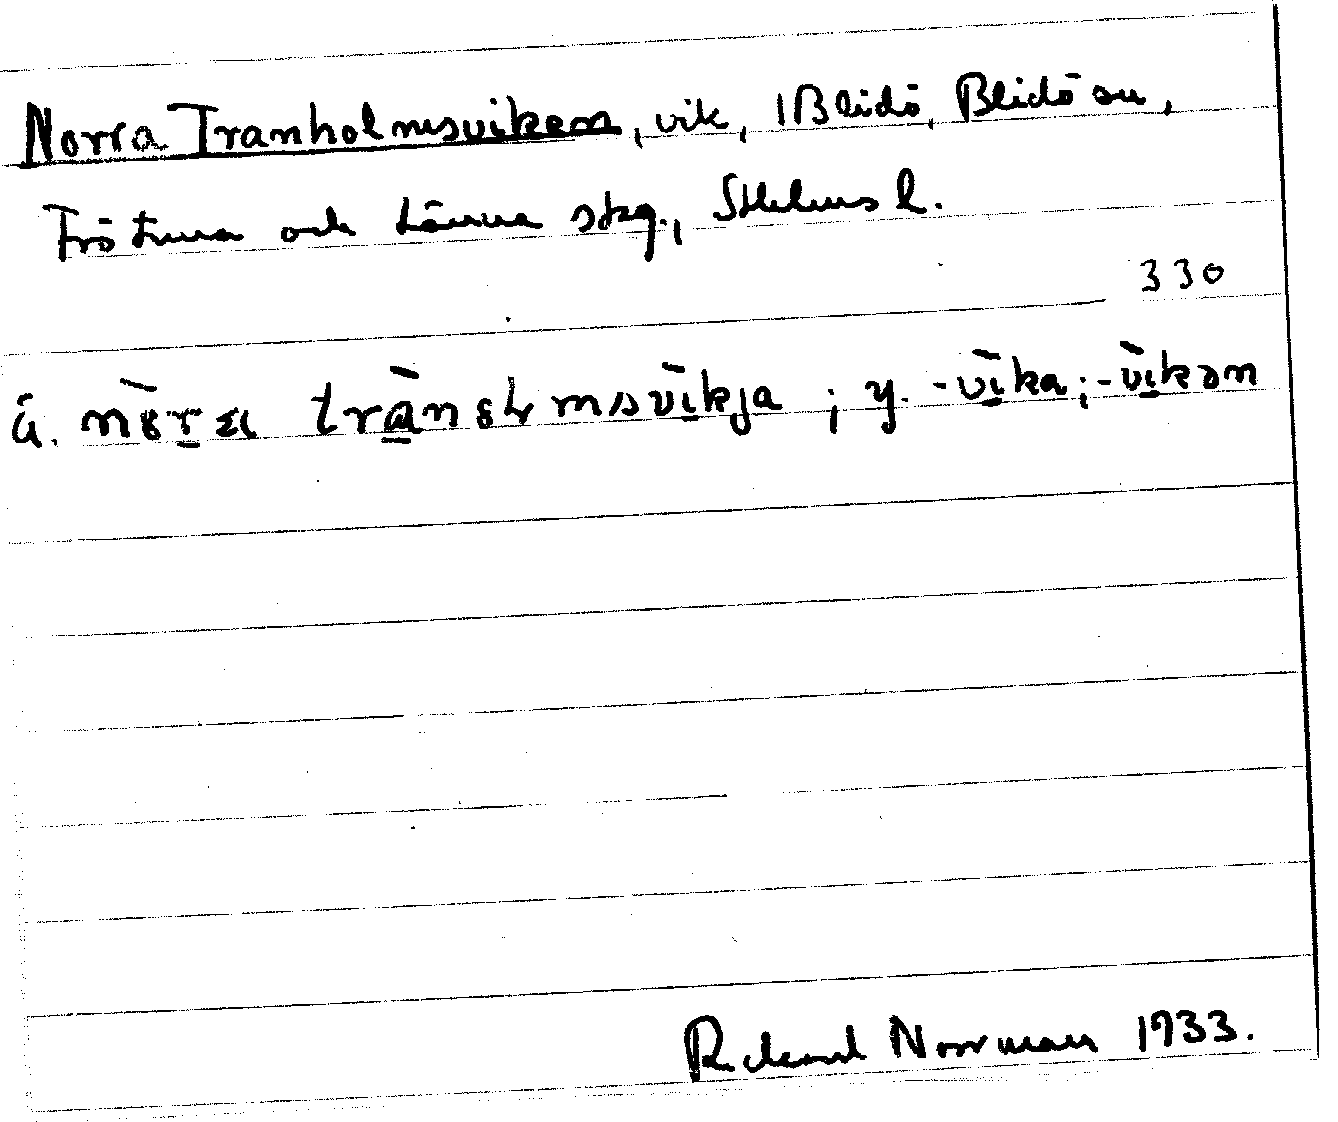 Norra Tranholmsviken, vik, 1 Blidö, Blidö sn,
Frötuna och Länna skg., Sthlms l.
330
ä. nǫ̀ra trànholmsvìkja ; y. -vìka; -vìkən
Rickard Norrman 1933.